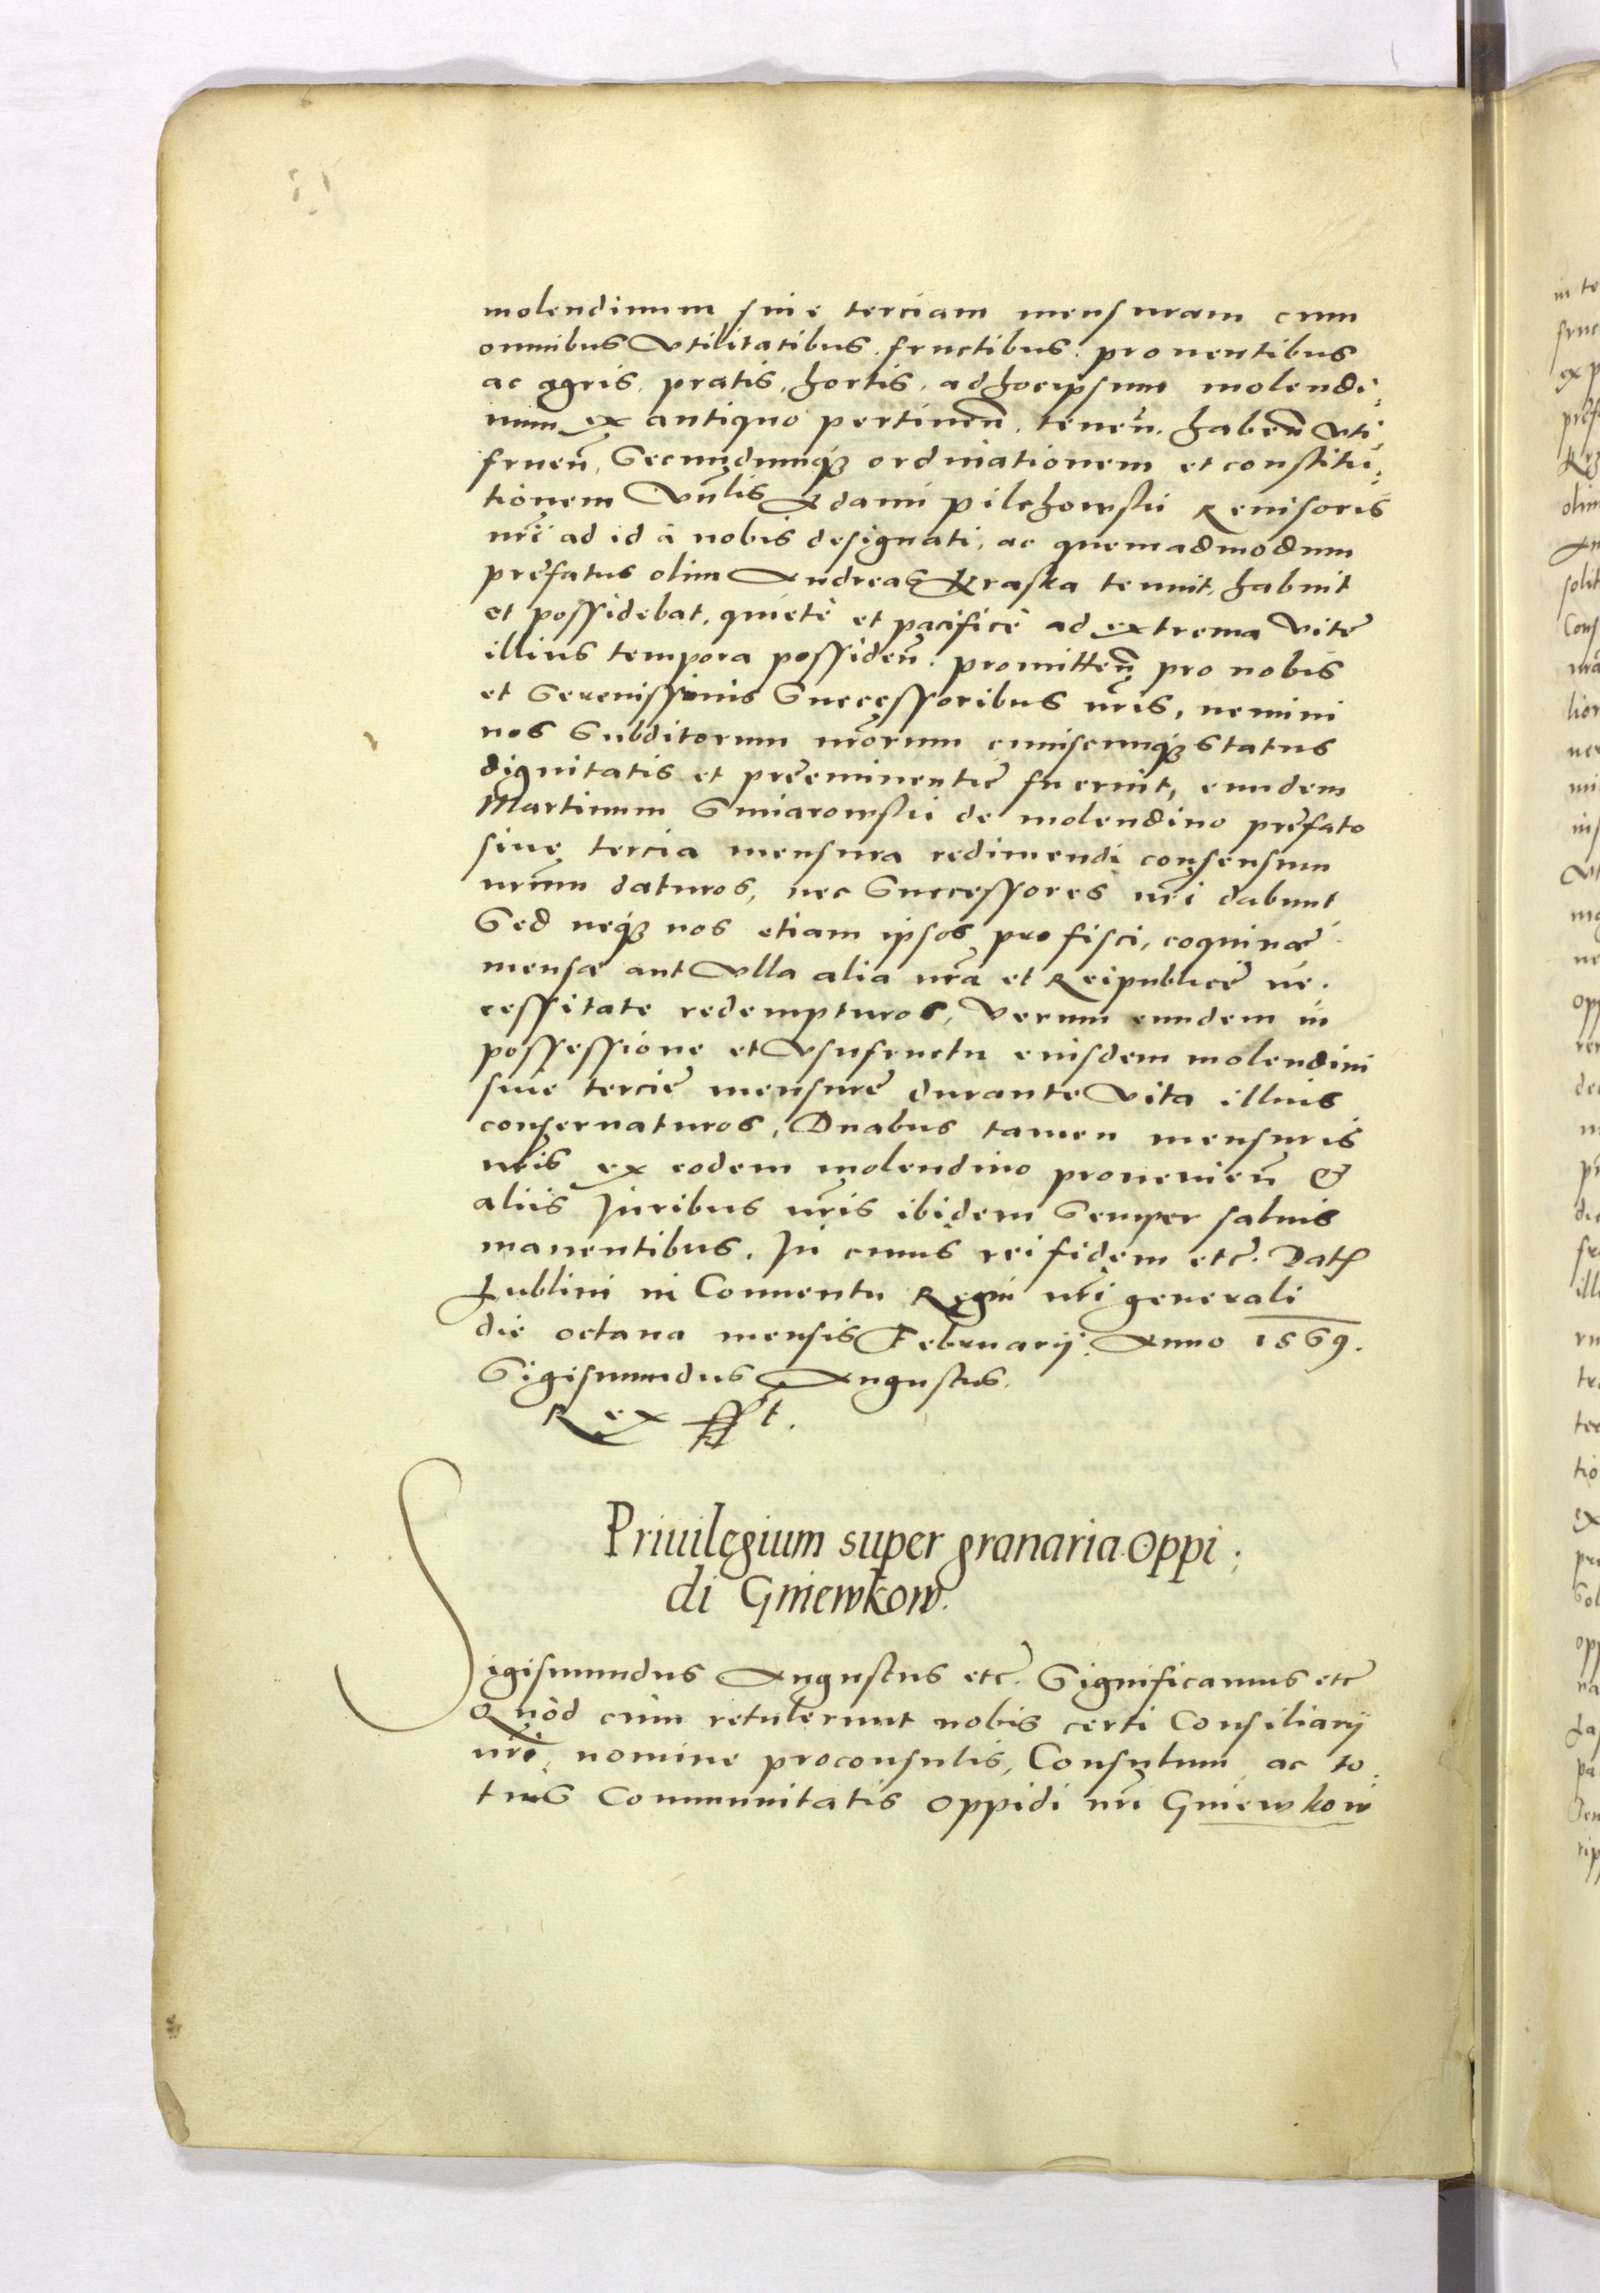 molendinum siue terciam mensuram cum
omnibus vtilitatibus, fructibus, prouentibus
ac agris, pratis, hortis, ad hocipsum molendi,
num ex antiquo pertinen̄, tenen̄, haben̄ vti,
fruen̄, Secundumq3 ordinationem et constitu,
tionem Vn̄lis Adami Pilchowskii Reuisoris
nr̄i ad id à nobis designati, ac quemadmodum
prefatus olim Andreas Kraska tenuit, habuit
et possidebat, quietè et pacificè ad extrema vitę
illius tempora possiden̄. promitten̄ pro nobis
et Serenissimis Successoribus nr̄is, nemini
nos Subditorum nr̄orum cuiuscunq3 status
dignitatis et preeminentię fuerint, eundem
Martinum Smiarowskii de molendino prefato
siue tercia mensura redimendi consensum
nrūm daturos, nec Successores nr̄i dabunt
Sed neq3 nos etiam ipsos pro fisci, coquinæ
mensæ aut vlla alia nr̄a et Reipublicę ne,
cessitate redempturos, verum eundem in
possessione et vsufructu eiusdem molendini
siue tercię mensurę durante vita illius
conseruaturos, Duabus tamen mensuris
nr̄is ex eodem molendino prouenien̄ &
aliis Iuribus nr̄is ibidem Semper saluis
manentibus. In cuius rei fidem etc̄. Dat̄
Lublini in Conuentu Regni nr̄i generali
die octaua mensis Februarij: Anno 1569.
Sigismundus Augustus.
Rex sst.
Priuilegium super granaria Oppi,
di Gniewkow.
Sigismundus Augustus etc̄. Significamus etc̄
Quòd cùm retulerunt nobis certi Consiliarij
nr̄i, nomine proconsulis, Consulum ac to,
tius Communitatis oppidi nr̄i Gniewkow